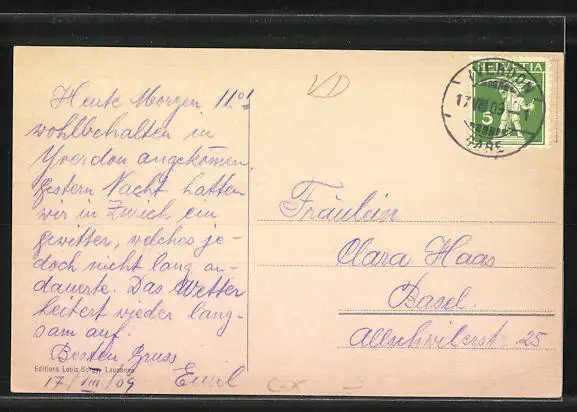 Heute Morgen 11.01
wohlbehalten in
Yverdon angekommen.
gestern Nacht hatten
wir in Zürich ein
gewitter, welches je-
doch nicht lang an-
dauerte. Das Wetter
heitert wieder lang-
sam auf.
Besten Gruss
Emil
17/VIII/09
Editions Louis Burgy, Lausanne
VD
YVERDON
17.VIII.09
GARE
HELVETIA
5
Fräulein
Clara Haas
Basel.
Allschwilerst. 25
C-X